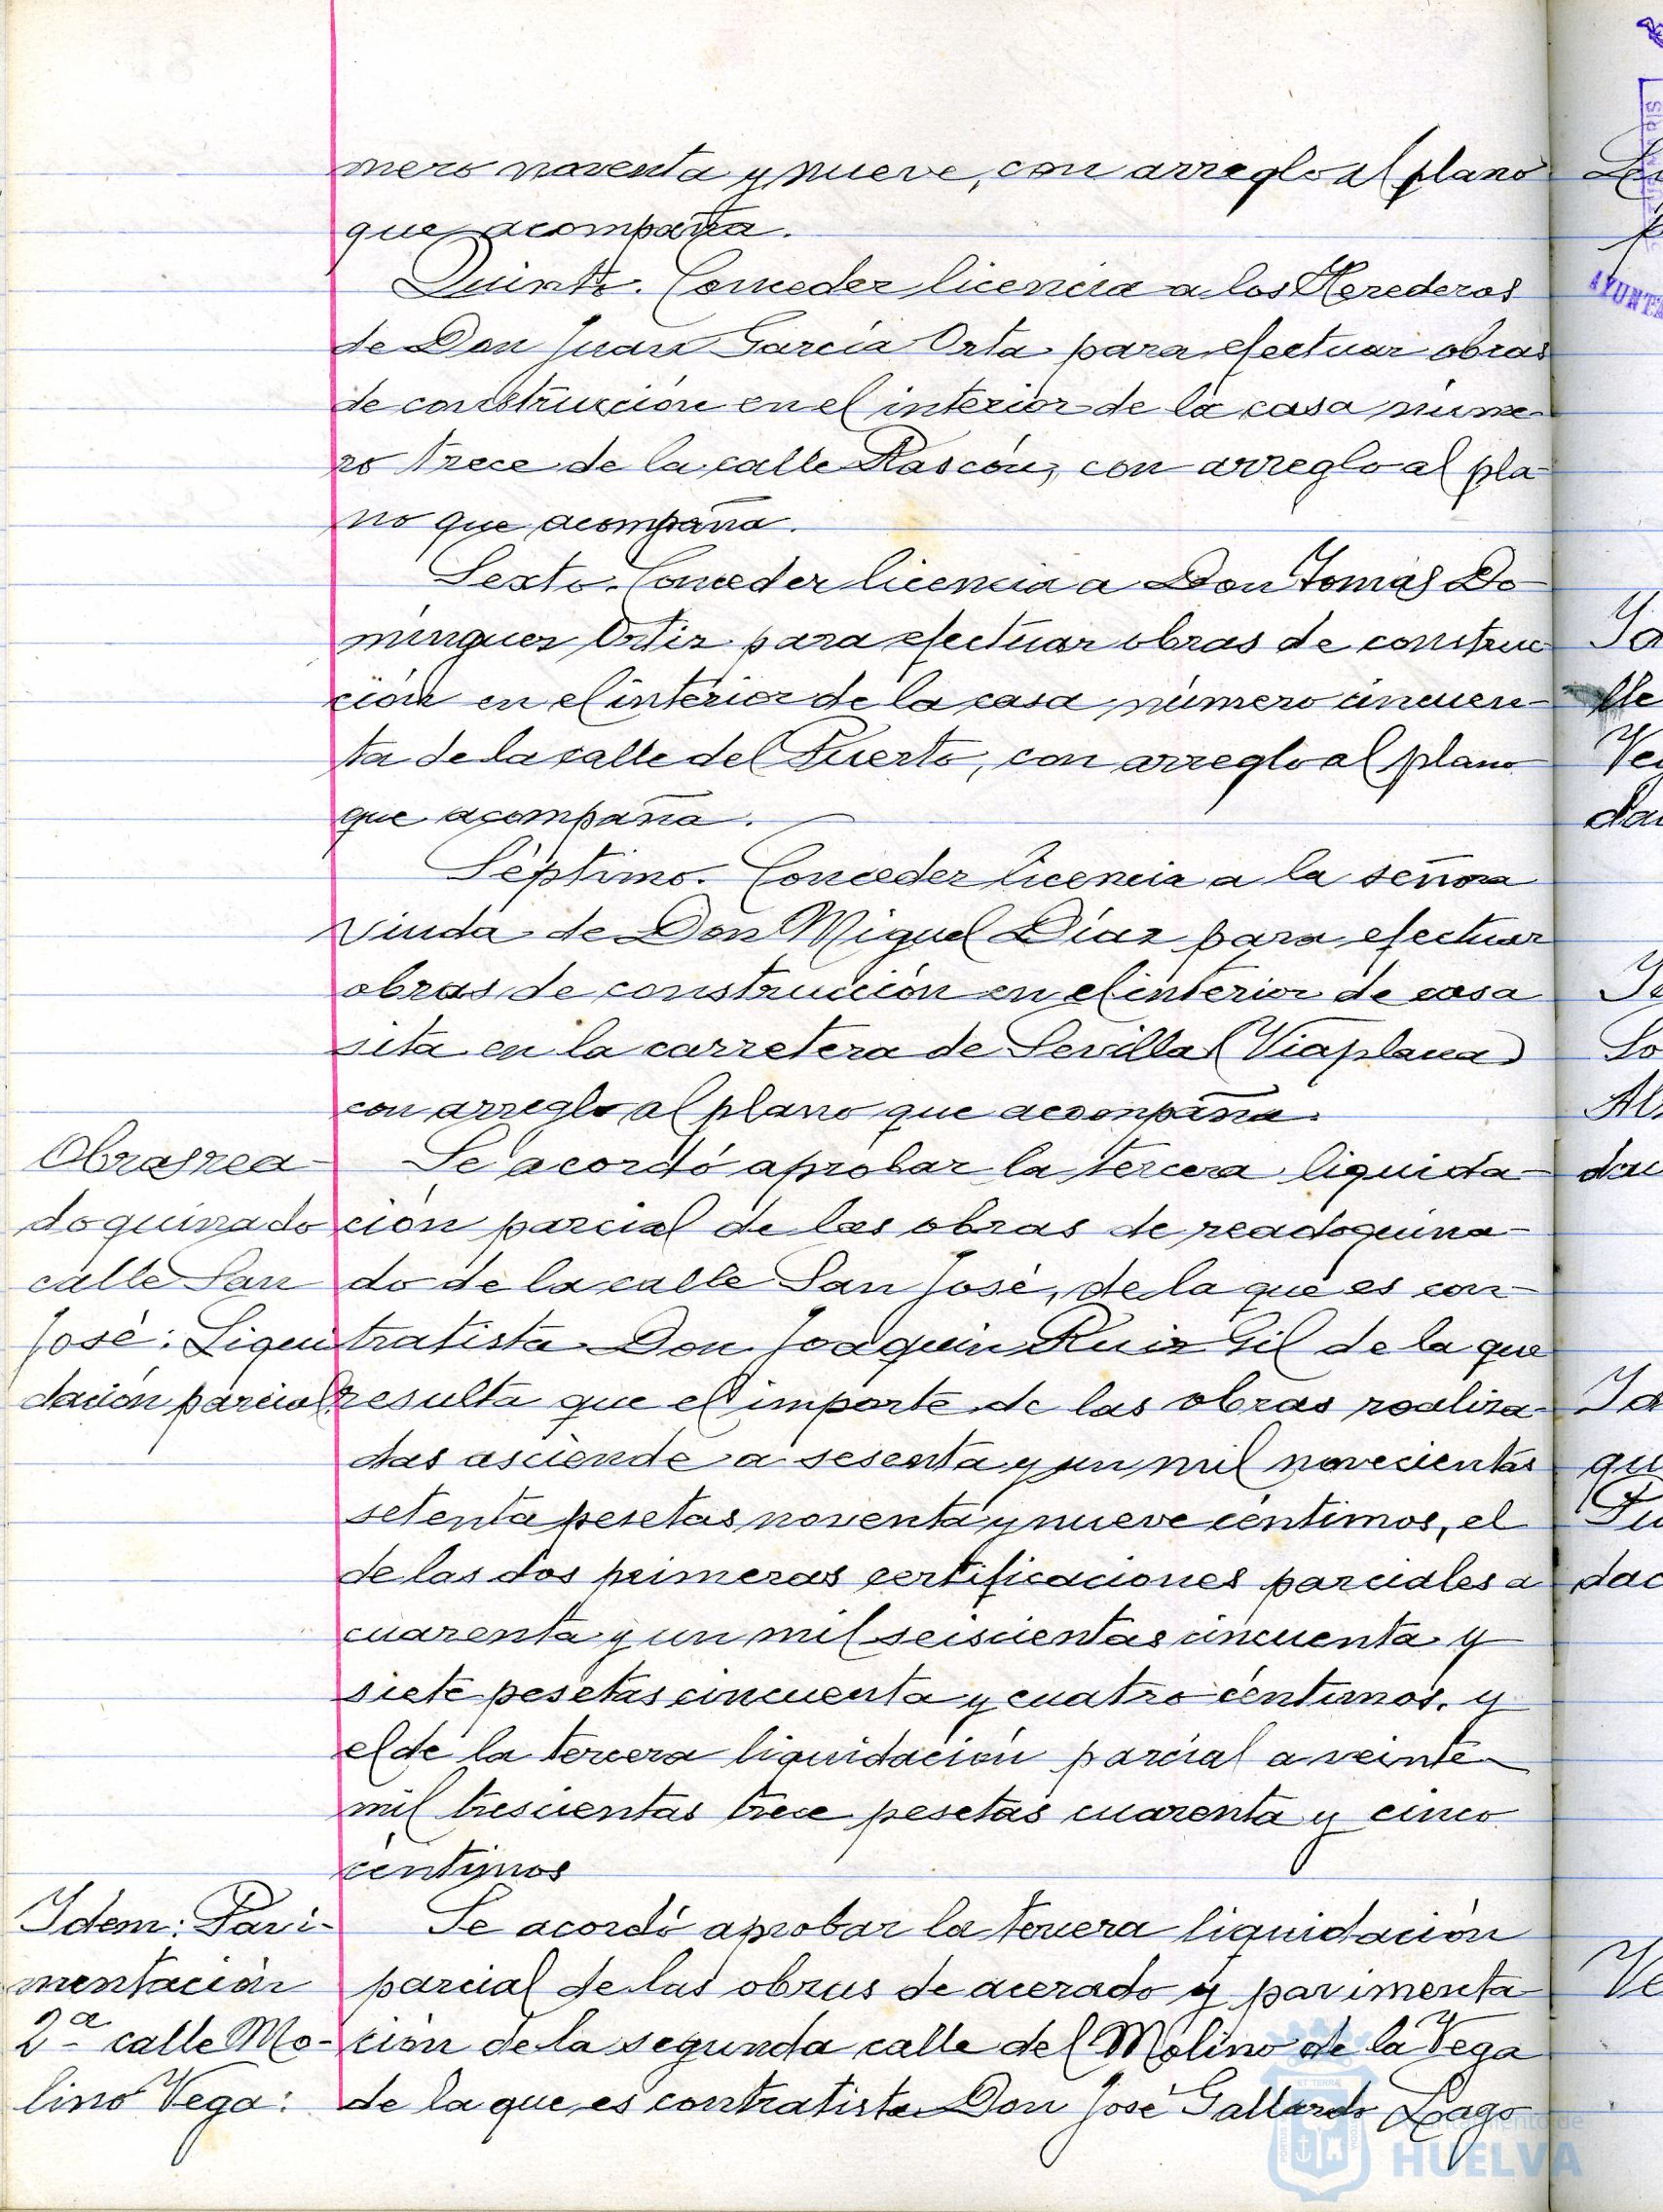 mero noventa y nueve, con arreglo al plano
que acompaña.
Quinto. Conceder licencia a los Herederos
de Don Juan García Orta para efectuar obras
de construcción en el interior de la casa núme-
ro trece de la calle Rascón, con arreglo al pla-
no que acompaña.
Sexto. Conceder licencia a Don Tomás Do-
minguez Ortiz para efectuar obras de construc-
ción en el interior de la casa número cincuen-
ta de la calle del Puerto, con arreglo al plano
que acompaña.
Séptimo. Conceder licencia a la señora
viuda de Don Miguel Díaz para efectuar
obras de construcción en el interior de casa
sita en la carretera de Sevilla (Viaplana)
con arreglo al plano que acompaña.
Obras rea-
doquinado
calle San
José: Liqui
dación parcial:
Se acordó aprobar la tercera liquida-
ción parcial de las obras de readoquina-
do de la calle San José, de la que es con-
tratista Don Joaquin Ruiz Gil de la que
resulta que el importe de las obras realiza-
das asciende a sesenta y un mil novecientas
setenta pesetas noventa y nueve céntimos, el
de las dos primeras certificaciones parciales a
cuarenta y un mil seiscientas cincuenta y
siete pesetas cincuenta y cuatro céntimos, y
el de la tercera liquidación parcial a veinte
mil trescientas trece pesetas cuarenta y cinco
céntimos
Idem: Pavi-
mentación
2ª calle Mo-
lino Vega:
Se acordó aprobar la tercera liquidación
parcial de las obras de acerado y pavimenta-
ción de la segunda calle del Molino de la Vega
de la que es contratista Don José Gallardo Lago
Ayuntamiento de
HUELVA